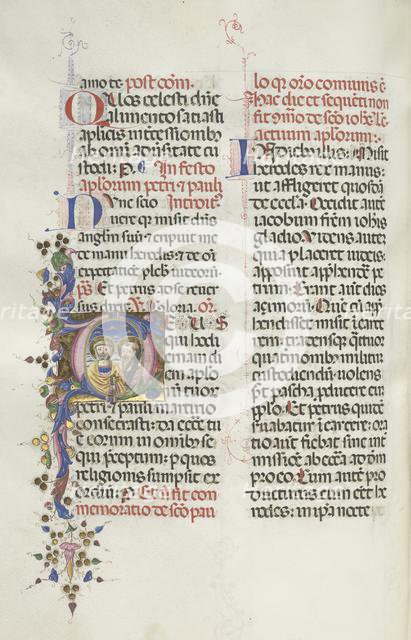 amo te. post com.
Quos celesti dñe
alimento satiasti
aplicis intercessionib'
ab omī aduersitate cu
stodi. P. In festo
aplorum petri & pauli
Nunc scio Introit'
uere qr misit dñs
anglm suū: & eripuit me
de manu herodis: & de oī
expectatiōe plebis iudeorū.
ps Et petrus ad se reuer
sus dixit. V. Gloria. or.
Deus
qui hodi
ernam di
em aplo
rum tuorum
petri & pauli martirio
consecrasti: da eccle tu
e eorum in omnib' se
qui preceptum: p quos
religionis sumpsit ex
ordium. p. Et fit com
memoratio de sco pau
lo qr oro comunis ē
hac die et sequenti non
fit 9mō de sco iohē. le
actuum aplorum.
In diebus illis: Misit
herodes rex manus:
ut affligeret quosdā
de eccla. Occidit autē
iacobum frēm iohis
gladio. Uidens autem
quia placeret iudeis:
apposuit apphendere &
petrum. Erant autē dies
açimorū. Quem cū appre
hendisset misit i carce
rem: tradens quattuor
quaternionib' militum
custodiendū. uolens
post pascha pducere eū
pplo. Et petrus quidē
seruabatur i carcere: ora
tio autē fiebat sine int
missiōe ab eccla ad dm
p eo. Cum autē pro
ducturus eum eēt he
rodes: in ipa nocte